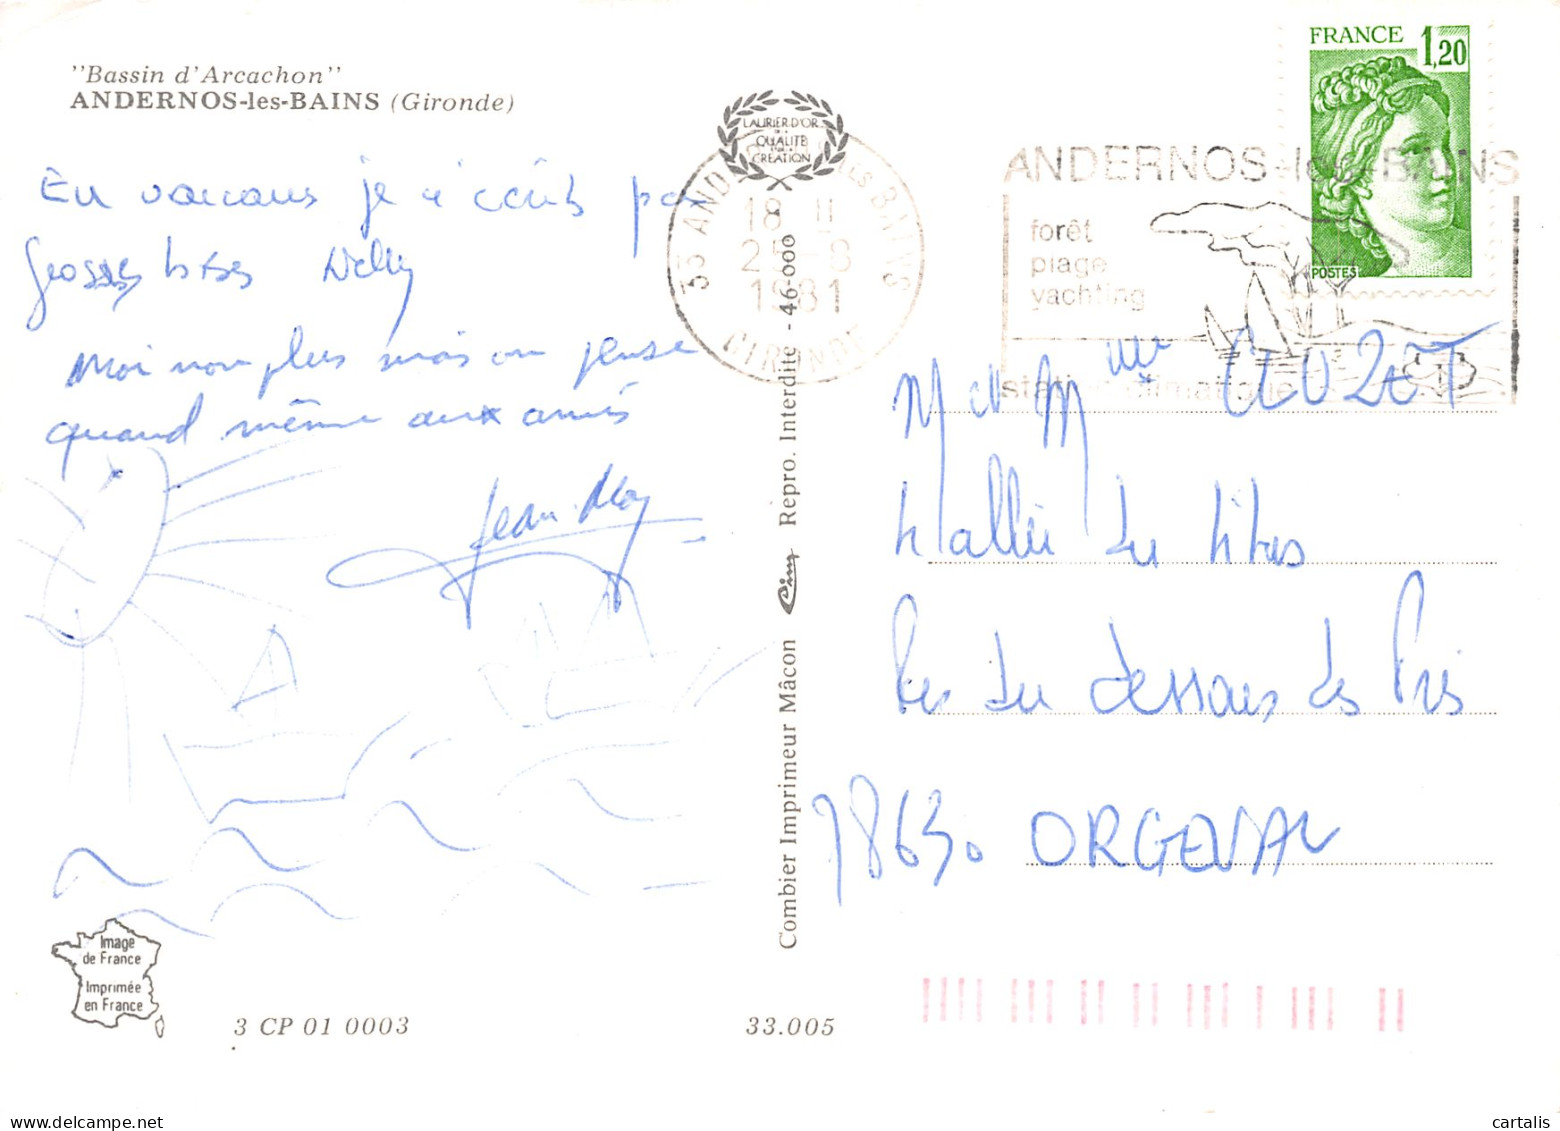 "Bassin d'Arcachon"
ANDERNOS-les-BAINS (Gironde)
En vacances je n'écris pas
grosses bises Nelly
Moi non plus mais on pense
quand même aux amis
Jean
Image
de France
Imprimée
en France
3 CP 01 0003
33.005
Combier Imprimeur Mâcon Cim Repro. Interdite - 46-000
LAURIER D'OR
QUALITÉ
CRÉATION
33 ANDERNOS LES BAINS
18 H
25-8
1981
GIRONDE
ANDERNOS-les-BAINS
forêt
plage
yachting
station climatique
FRANCE 1,20
POSTES
M et Mme
4 allée des
Rés du dessous des Prés
78630 ORGEVAL
cartalis